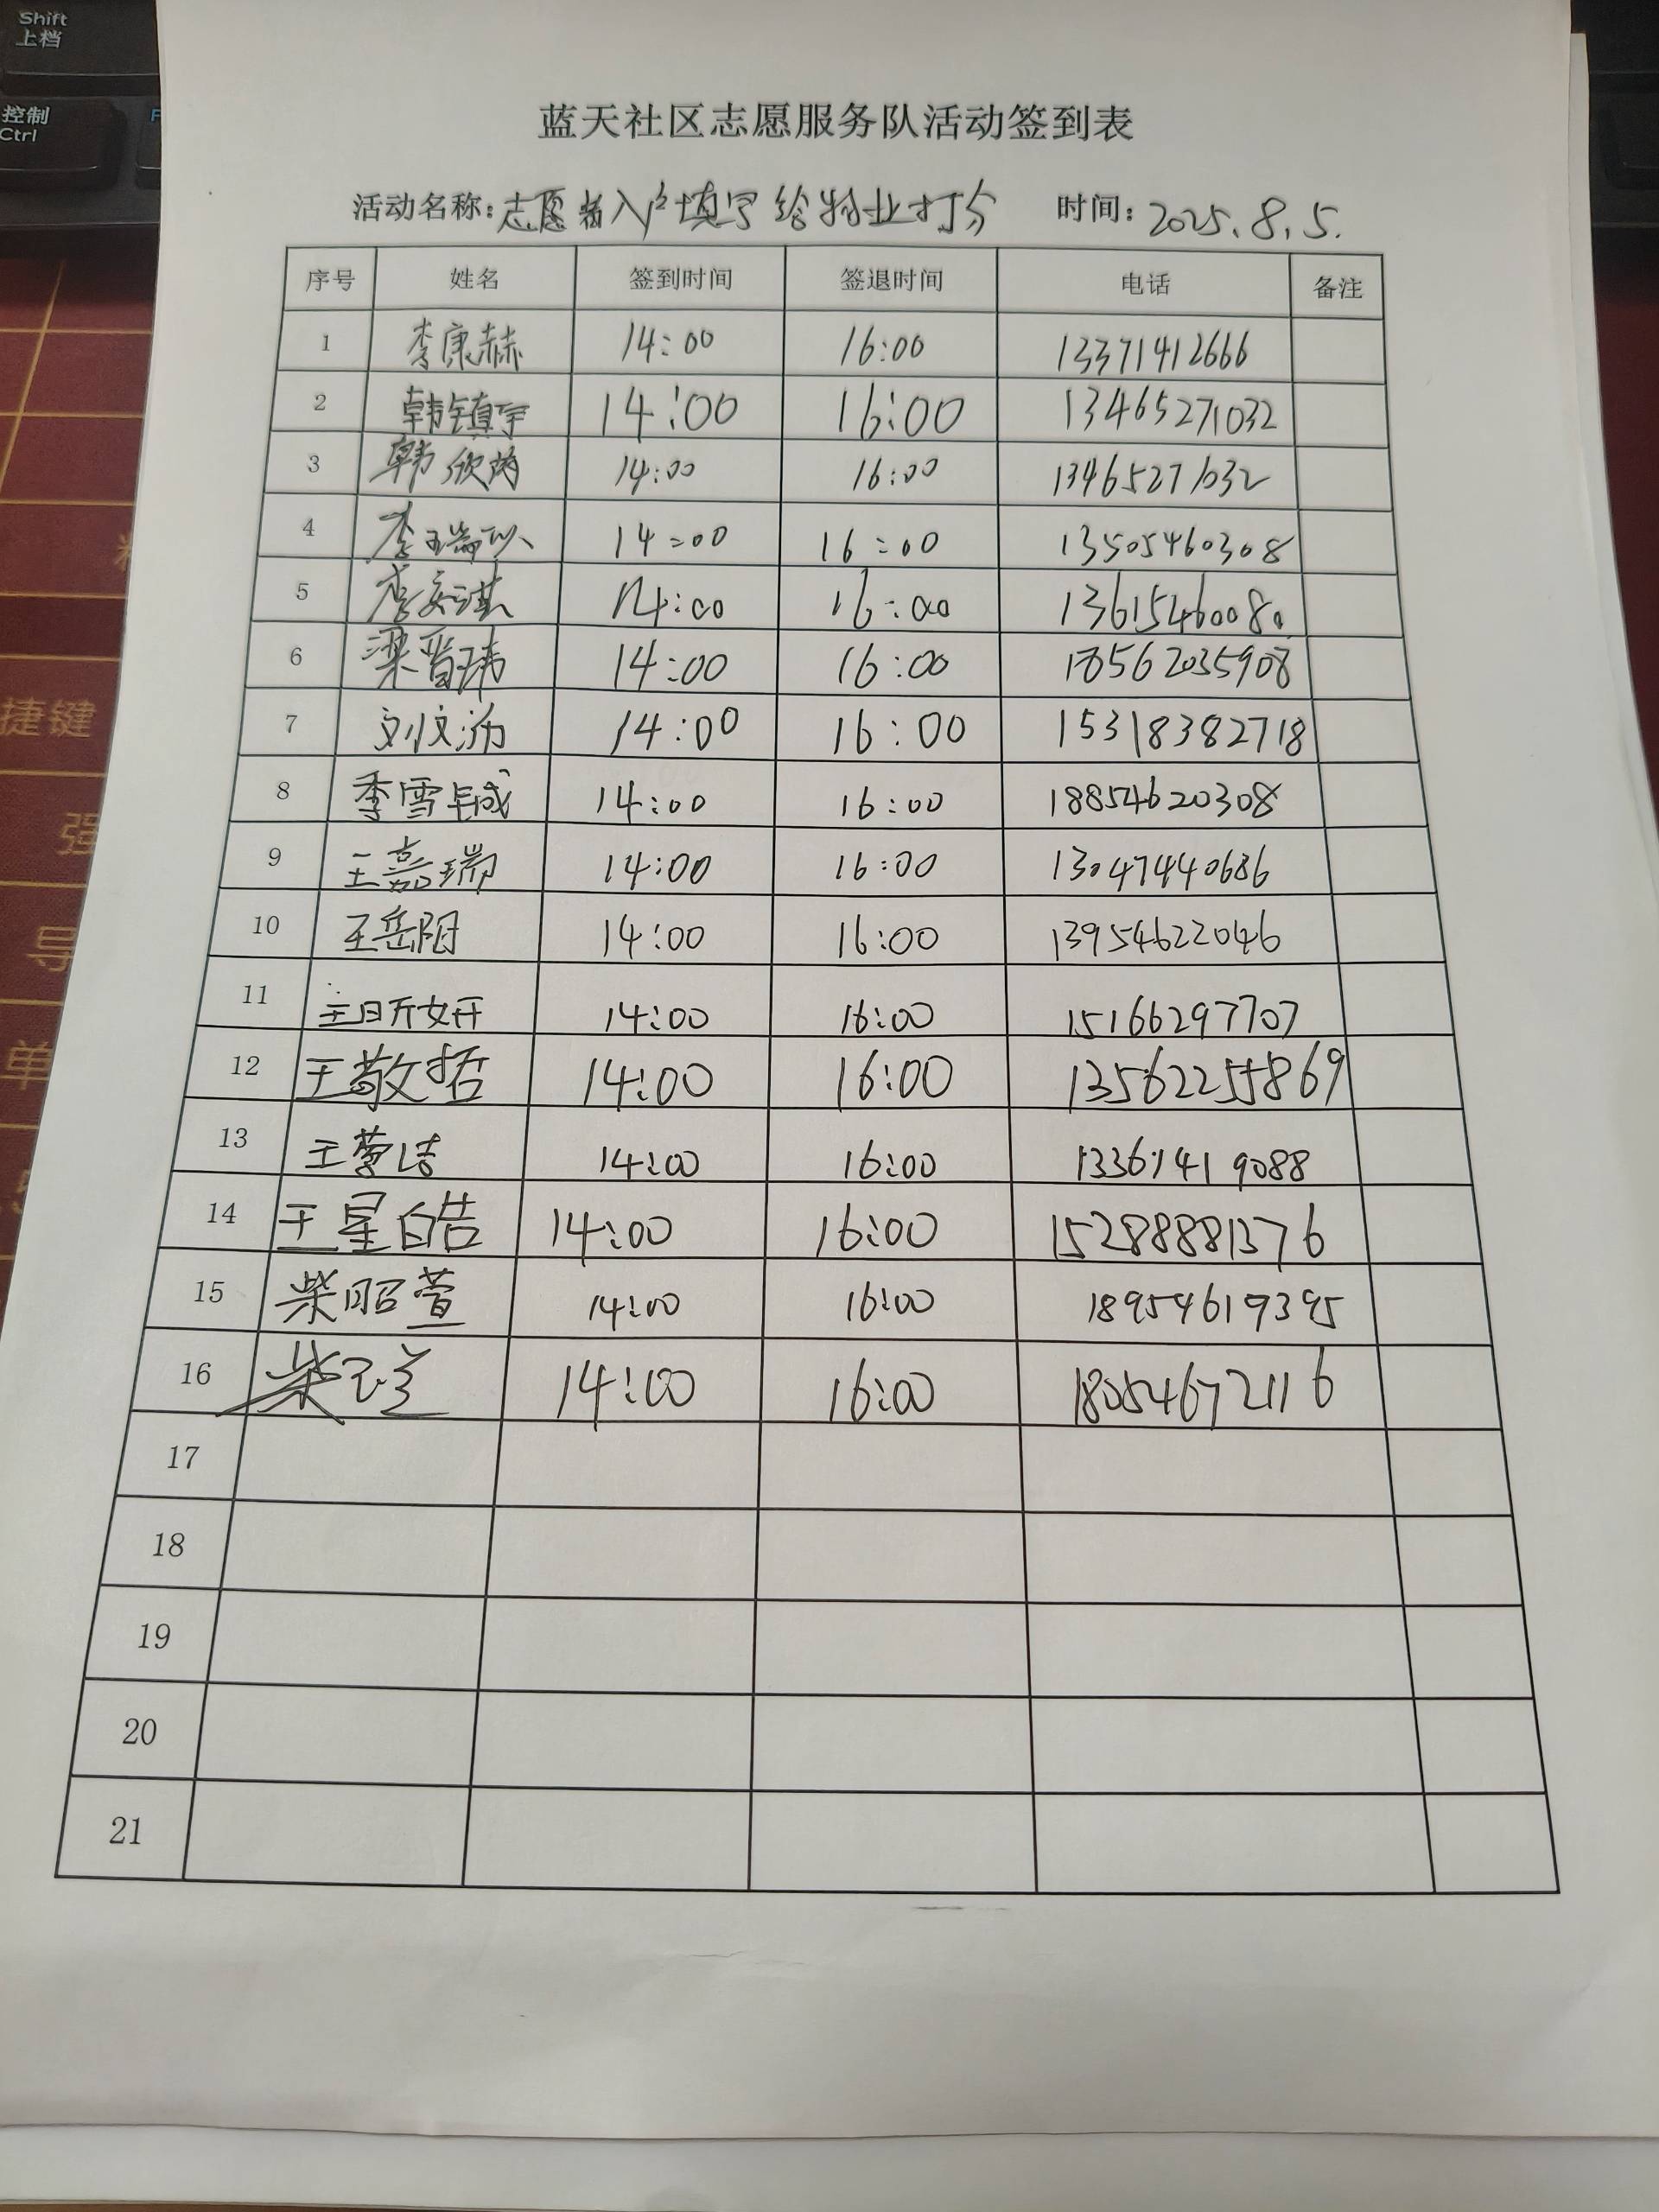 Shift
上档
控制
Ctrl
F
捷键
强
导
单
蓝天社区志愿服务队活动签到表
活动名称:志愿者入户填写给物业打分 时间:2025.8.5.
序号 姓名 签到时间 签退时间 电话 备注
1 李康赫 14:00 16:00 13371412666
2 韩镇宇 14:00 16:00 13465271032
3 韩欣芮 14:00 16:00 13465271032
4 李瑞 14:00 16:00 13505460308
5 李安淇 14:00 16:00 13615460080
6 梁晋玮 14:00 16:00 18562035908
7 刘文沥 14:00 16:00 15318382718
8 季雪毓 14:00 16:00 18854620308
9 王嘉瑞 14:00 16:00 13047440686
10 王岳阳 14:00 16:00 13954622046
11 王昕妍 14:00 16:00 15166297707
12 王敬哲 14:00 16:00 13562255869
13 王萱洁 14:00 16:00 13361419088
14 王星皓 14:00 16:00 15288881376
15 柴昭萱 14:00 16:00 18954619395
16 柴 14:00 16:00 18054672116
17
18
19
20
21